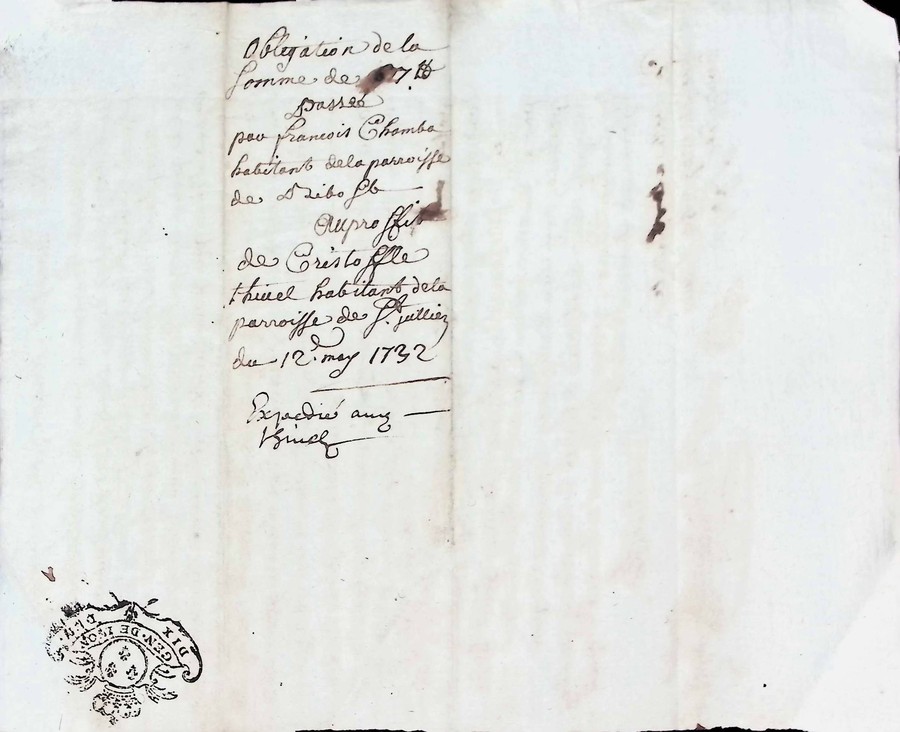 Obligation de la
somme de 67 ₶
passeé
par francois Chamba
habitant dela parroisse
de Ribost
Auproffit
de Cristoffle
thiuel habitant dela
parroisse de St. jullien
du 12e. may 1732
Expedié auq
thiuel
GEN. DE LYON
DIX DEN.